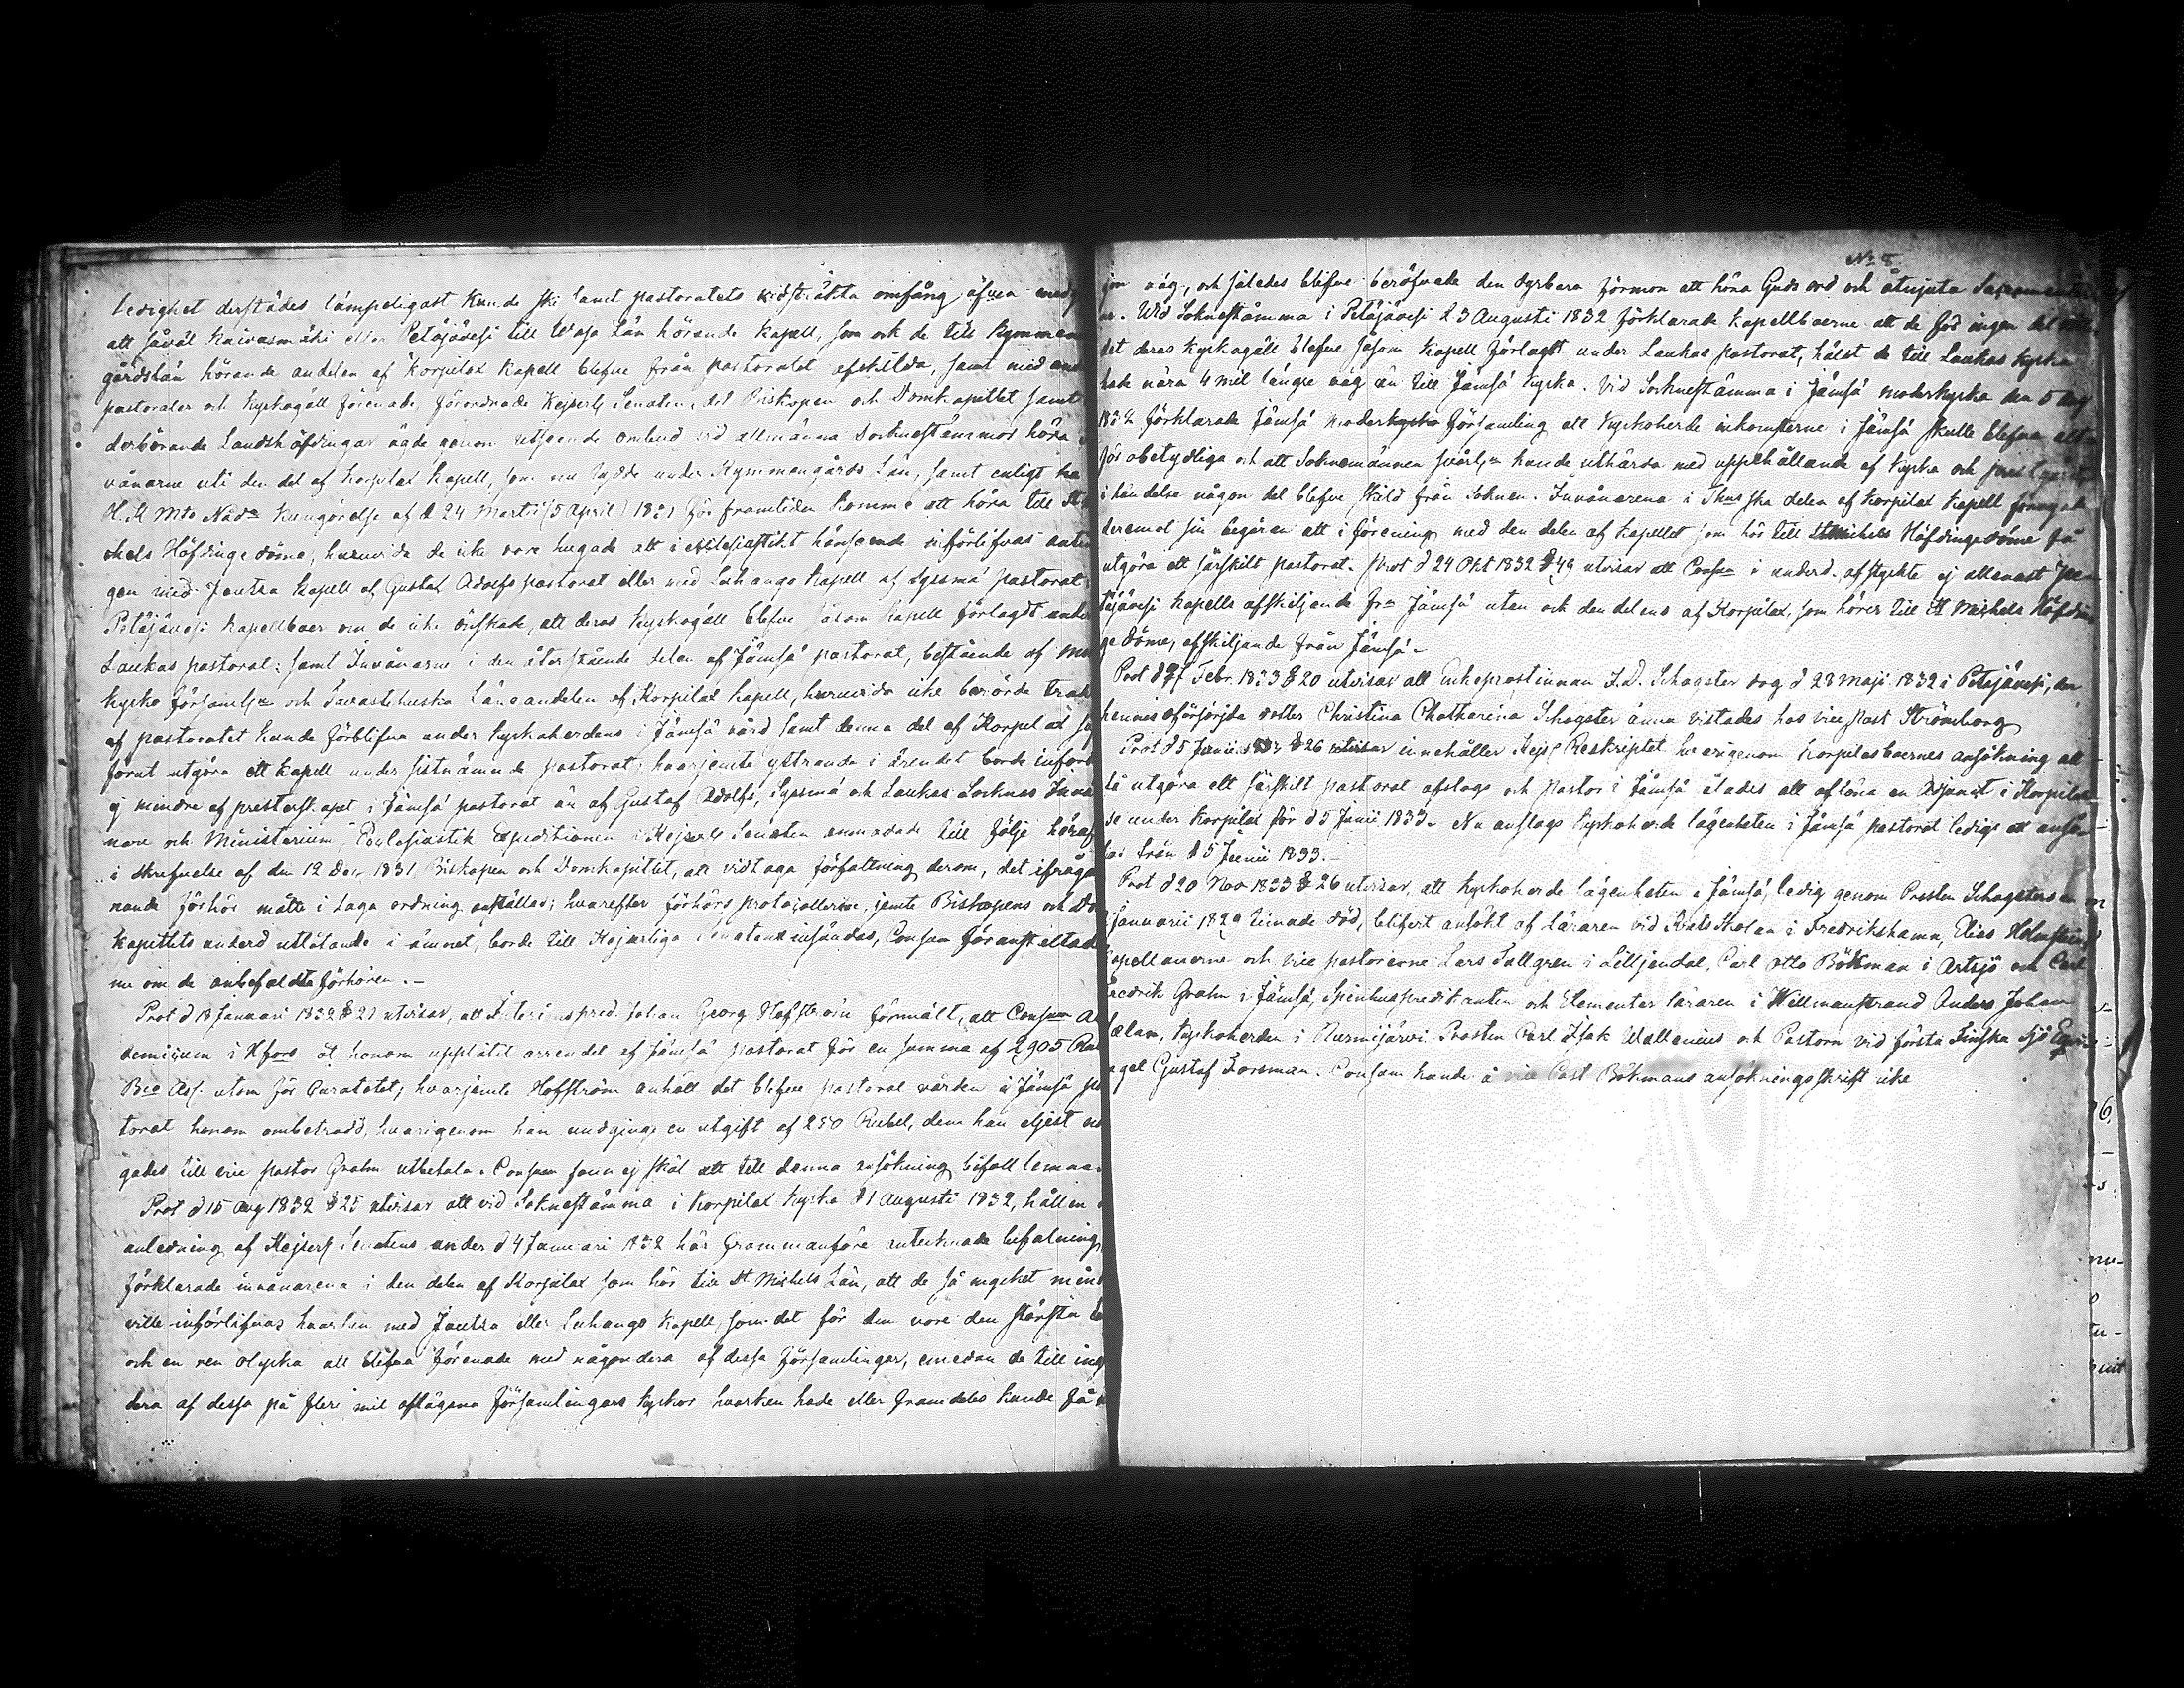 ledighet derstädes lämpeligast kunde ske samt pastoratets vidsträkta omfång äfven
att såväl Kaivasmäki eller Petäjävesi till Wasa Län hörande kapell, som ock de till Kymmene
gårdslän hörande andelen af Korpilax Kapell blefve från pastoratet afskilda, samt med
pastorater och kyrkogäll förenade, förordnade Kejserl Senaten, det Biskopen och Domkapitlet samt
derbörande Landshöfdingar ägde genom utseende ombud vid allmänna Sockneståmmor höra
vånarne uti den del af Korpilax Kapell, som nu lydde under Kymmenegårds Län, samt enligt
H.K Mts Nåda Kungörelse af d 24 Martii (5 April) 1831 för framtiden komme att höra till St
chels Höfdingedöme, huruvida de icke vore hugade att i ecclesiastikt hänseende införlifvas
gen med Joutsa Kapell af Gustaf Adolfs pastorat eller med Luhango Kapell af Sysmä pastorat
Petäjävesi Kapellboer om de icke önskade, att deras kyrkogäll blefve såsom Kapell förlagdt under
Laukas pastorat; samt Invånarne i den återstående delen af Jämsä pastorat, bestående af
kyrko församl:n och Tavastehuska Läneandelen af Korpilax Kapell, huruvida icke berörde
af pastoratet kunde förblifva under kyrkoherdens i Jämsä vård samt denna del af Korpilax
förut utgöra ett kapell under sistnämnde pastorat; hvarjemte yttrande i ärendet borde
ej mindre af presterskapet i Jämsä pastorat än af Gustaf Adolfs, Sysmä och Laukas Socknes
nare och Ministerium, Ecclesiastik Expeditionen i Kejserl Senaten anmodade till följe häraf
i skrifvelse af den 12 Dec 1831 Biskopen och Domkapitlet, att vidtaga författning derom, det
nande förhör måtte i Laga ordning anställas; hvarefter förhörs protocollerne, jemte Biskopens och
kapitlets underd utlåtande i ämnet, borde till Kejserliga Senaten insändas, Consum föranstaltade
ne om de anbefaldta förhören.-
Prot d 18 Januari 1832 § 21 utvisar, att Interimspred. Johan Georg Hofström förmält, att Consum
demicum i Hfors åt honom upplåtit arrendet af Jämsä pastorat för en summa af 2905
Bco Ass. utom för Curatelet; hvarjemte Hofström anhöll det blefve pastoral vården i Jämsä
torat honom ombetrodd, hvarigenom han undginge en utgift af 250 Rubel, dem han eljest
gades till vice pastor Grahn utbetala. Consum fann ej skäl att till denna ansökning bifall lemna.
Prot d 15 Aug 1832 § 25 utvisar att vid Sokneståmma i Korpilax kyrka d 1 Augusti 1832, hållen
anledning af Kejserl Senatens under d 4 Januari 1832 här frammanföre antecknade befalning,
förklarade invånarena i den delen af Korpilax som hör till St Michels Län, att de så mycket
ville införlifvas hvarken med Joutsa eller Luhango Kapell, som det för dem vore den största
och en ren olycka att blifva förenade med någondera af dessa församlingar, emedan de till
dera af dessa på flere mil aflägsna församlingars kyrkor hvarken hade eller framdeles kunde få
No 8
väg, och således blifva beröfvade den dyrbara förmon att höra Guds ord och åtnjuta
Wid Sokneståmma i Petäjävesi 23 Augusti 1832 förklarade kapellboerne att de för ingen del
det deras kyrkogäll blefve såsom Kapell förlagdt under Laukas pastorat, hälst de till Laukas kyrka
hade nära 4 mil längre väg än till Jämsä kyrka. Vid Sockneståmma i Jämsä moderkyrka den 5 Aug
1832 förklarade Jämsä moderkyrko församling att kyrkoherde inkomsterne i Jämsä skulle blifva
för obetydliga och att Soknemännen svårl:n kunde uthärda med uppehållande af kyrka och
i händelse någon del blefve skild från Soknen. Invånarena i Thus ska delen af Korpilax Kapell
deremot sin begäran att i förening med den delen af Kapellet som hör till St Michels Höfdingedöme få
utgöra ett särskilt pastorat. Prot d 24 Okt 1832 § 49 utvisar att Consum i underd. afstyrkte ej allenast
täjävesi Kapells afskiljande frn Jämsä utan ock den delens af Korpilax, som hörer till St Michels
ge döme, afskiljande från Jämsä.-
Prot d Febr. 1833 § 20 utvisar att Enkeprostinnan Schogster dog d 28 Maji 1832 i Petäjävesi, der
hennes oförsörjda dotter Christina Chatharina Schogster ännu vistades hos vice past Strömborg
Prot d 5 Junii 1833 § 26 utvisar innehåller Kejs Reskriptet hvarigenom Korpilaxboernes ansökning att
få utgöra ett särskilt pastorat afslogs och Pastor i Jämsä ålades att aflöna en Adjunct i Korpilax
se under Korpilax för d 5 Junii 1833.- Nu anslogs kyrkoherde lägenheten i Jämsä pastorat ledig att
från d 5 Junii 1833.-
Prot d 20 Nov 1833 § 26 utvisar, att kyrkoherde lägenheten i Jämsä, ledig genom Prosten Schogsters
Januarii 1829 timade död, blifvit ansökt af Läraren vid Krets Skolan i Fredrikshamn, Elias
Capellanerne och vice pastorerne Lars Tallgren i Liljendal, Carl Otto Bökman i Artsjö och Carl
Fredrik Grahn i Jämsä, Spinhuspredikanten och Elementar läraren i Willmanstrand Anders Johan
, kyrkoherden i Nurmijärvi Prosten Carl Isak Wallenius och Pastorn vid första Finska Sjö
Gustaf Forsman. Consum kunde å vice Past Bökmans ansökningsskrift icke